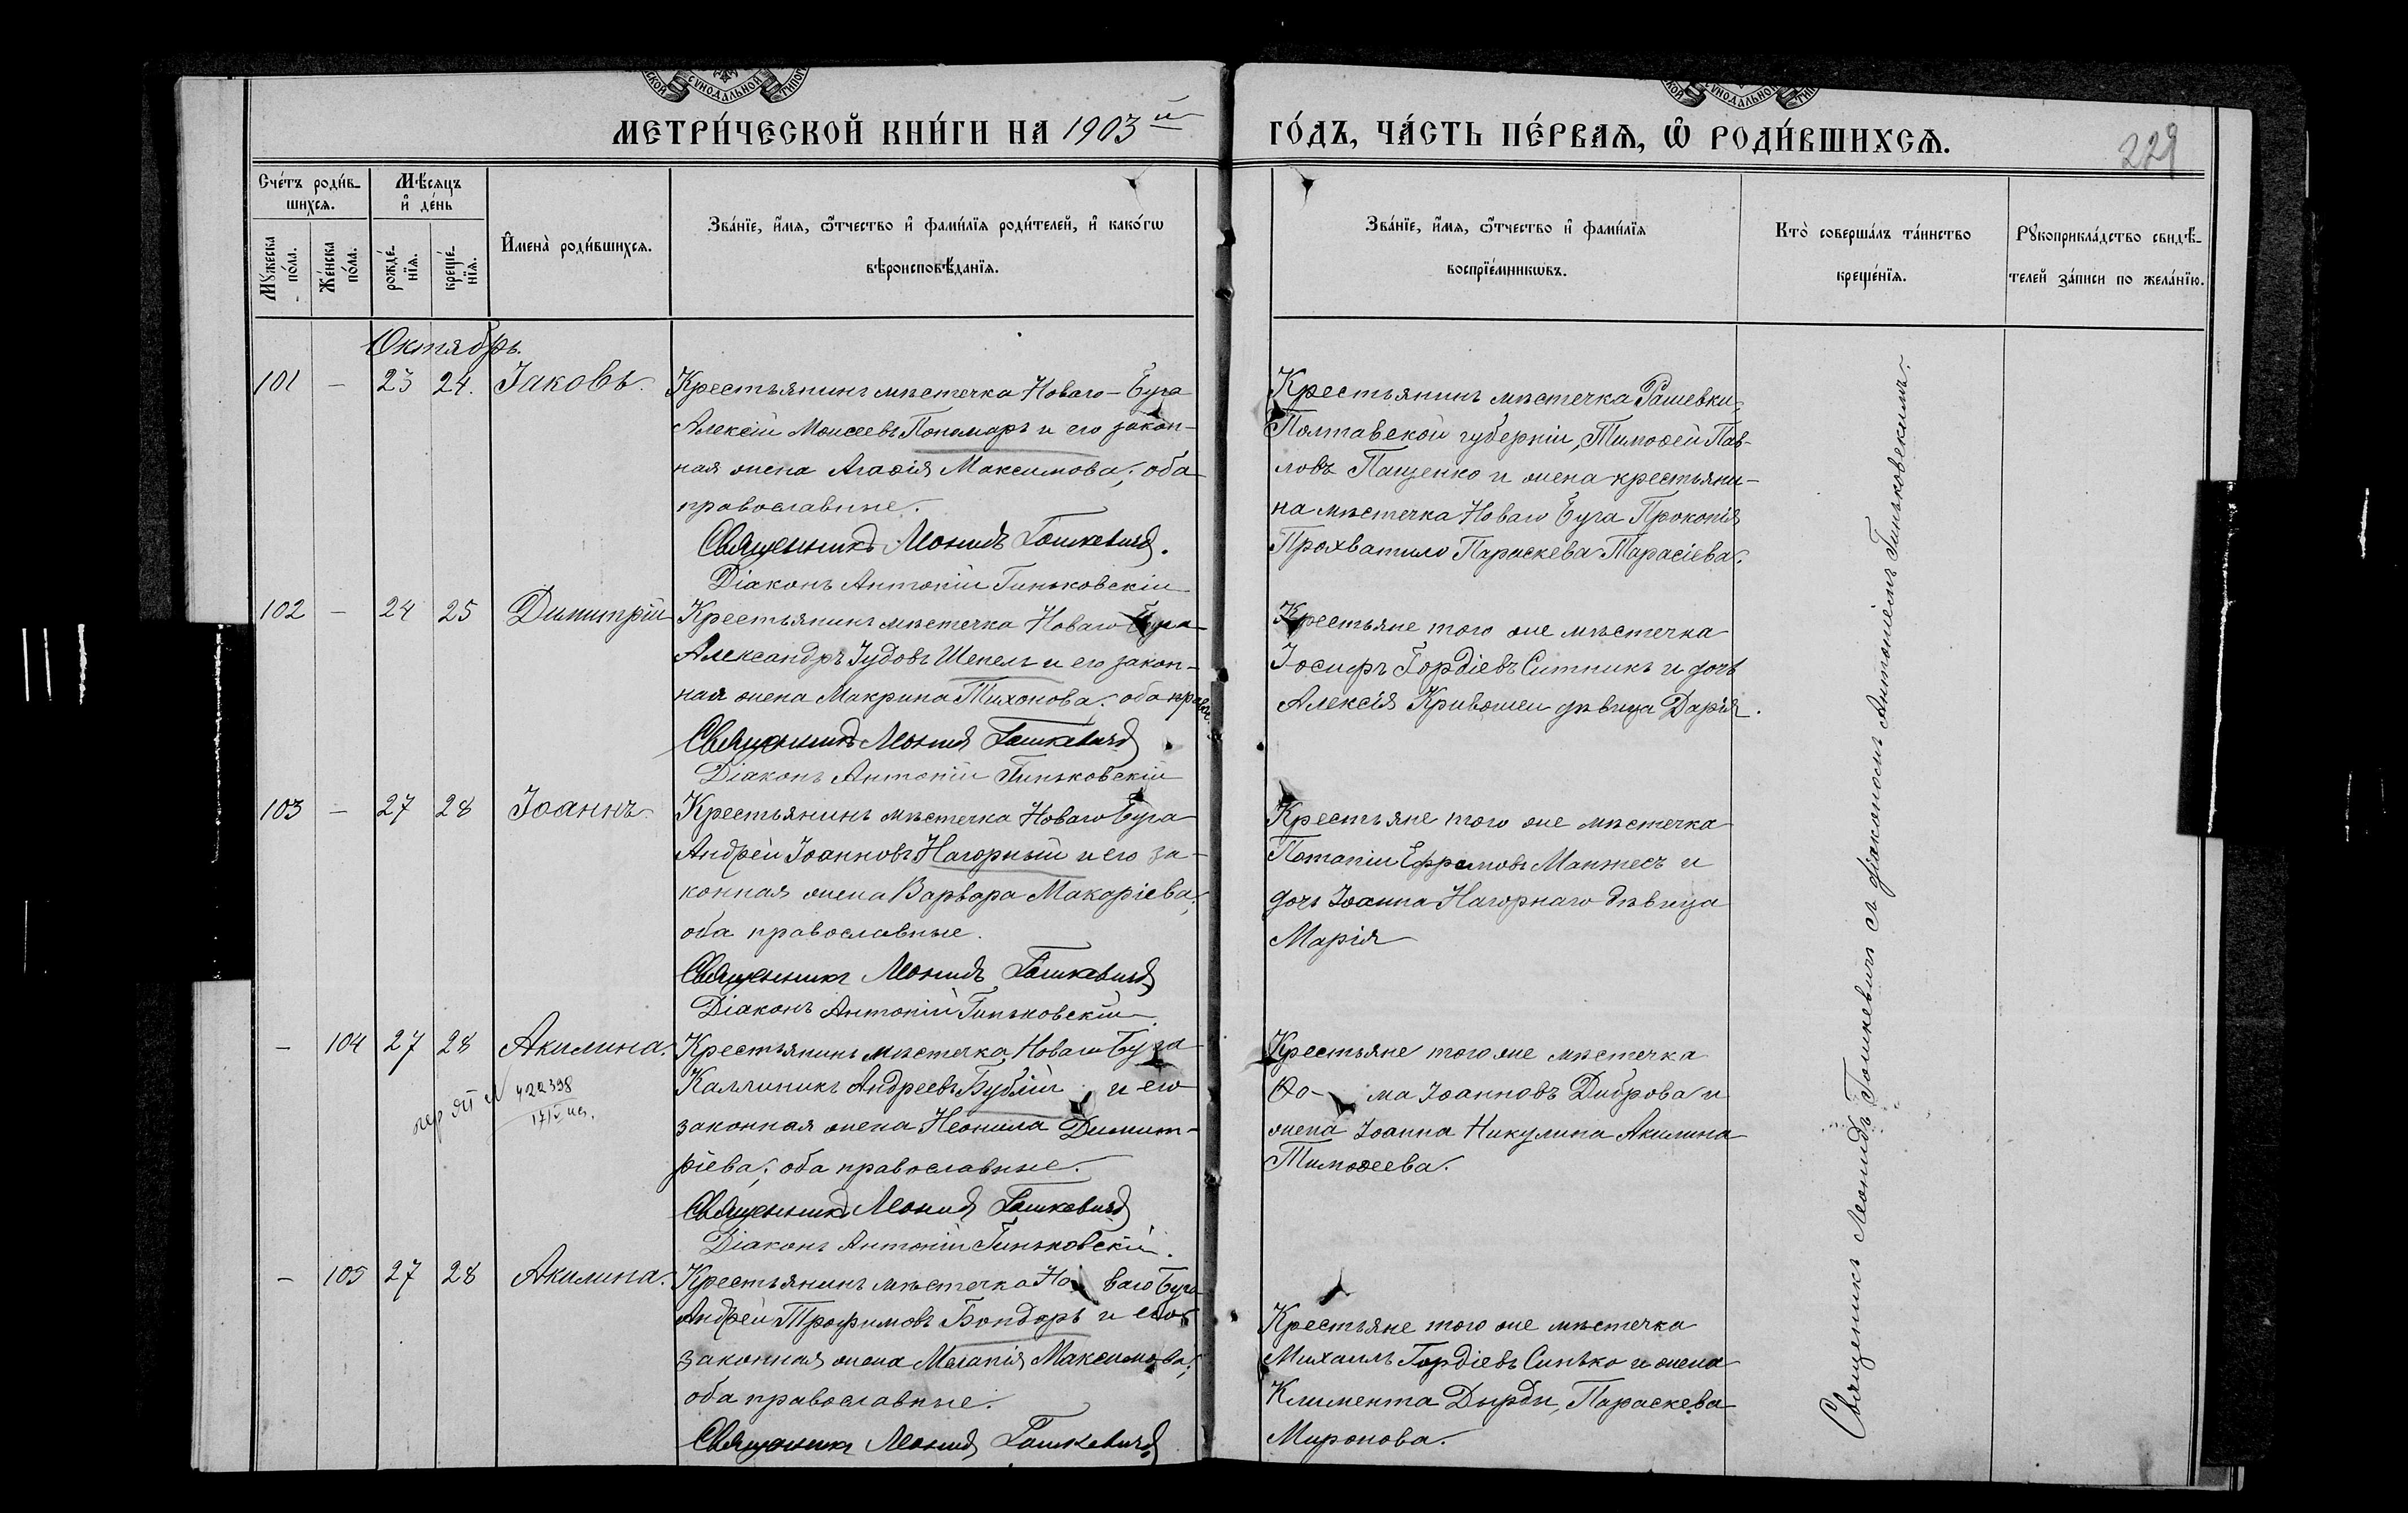 МЕТРИ́ЧЕСКОЙ КНИ́ГИ НА 1903й ГО́ДЪ, ЧА́СТЬ ПЕ́РВАЯ, Ѡ РОДИ́ВШИХСѦ.
229
Сче́тъ роди́в-
шихсѧ.
Мѣ́сяцъ
и҆ де́нь
Мꙋжеска по́ла.
Же́нска по́ла.
рожде́-
нїѧ.
креще́-
нїѧ.
И҆мена̀ роди́вшихсѧ.
Зва́нїе, и҆́мѧ, ѻ҆́тчество и҆ фами́лїѧ роди́телей, и҆ како́гѡ
вѣроисповѣ́данїѧ.
Зва́нїе, и҆́мѧ, ѻ҆́тчество и҆ фами́лїѧ
воспрїе́мникѡвъ.
Кто̀ соверша́лъ та́инство
креще́нїѧ.
Рꙋкоприкла́дство свидѣ́-
телей за́писи по жела́нїю.
Октябрь.
101 — 23 24. Іаковъ.
Крестьянинъ мѣстечка Новаго-Буга
Алексій Моисеевъ Пономарь и его закон-
ная жена Агаѳія Максимова; оба
православные.
Священникъ Леонидъ Гошкевичъ.
Діаконъ Антоній Гиньковскій
Крестьянинъ мѣстечка Рашевки,
Полтавской губерніи, Тимоѳей Пав-
ловъ Пащенко и жена крестьяни-
на мѣстечка Новаго Буга Прокопія
Прохватило Параскева Тарасіева.
102 — 24 25 Димитрій
Крестьянинъ мѣстечка Новаго Буга
Александръ Іудовъ Шепель и его закон-
ная жена Макрина Тихонова. оба правос.
Священникъ Леонидъ Гошкевичъ.
Діаконъ Антоній Гиньковскій
Крестьяне того же мѣстечка
Іосифъ Гордіевъ Ситникъ и дочь
Алексія Кривошеи дѣвица Дарія.
103 — 27 28 Іоаннъ
Крестьянинъ мѣстечка Новаго Буга
Андрей Іоанновъ Нагорный и его за-
конная жена Варвара Макаріева;
оба православные.
Священникъ Леонидъ Гошкевичъ
Діаконъ Антоній Гиньковскій
Крестьяне того же мѣстечка
Потапій Ефремовъ Мантесъ и
дочь Іоанна Нагорнаго дѣвица
Марія
— 104 27 28 Акилина.
422398
Крестьянинъ мѣстечка Новаго Буга
Каллиникъ Андреевъ Бублій и его
законная жена Неонила Димит-
ріева; оба православные.
Священникъ Леонидъ Гошкевичъ
Діаконъ Антоній Гиньковскій.
Крестьяне того же мѣстечка
Ѳо- ма Іоанновъ Диброва и
жена Іоанна Никулина Акилина
Тимоѳеева.
— 105 27 28 Акилина.
Крестьянинъ мѣстечка Но ваго Буга
Андрей Трофимовъ Бондарь и его
законная жена Меланія Максимова;
оба православные.
Священникъ Леонидъ Гошкевичъ
Крестьяне того же мѣстечка
Михаилъ Гордіевъ Синько и жена
Климента Дырды, Параскева
Миронова.
Священникъ Леонидъ Гошкевичъ съ діакономъ Антоніемъ Гиньковскимъ.